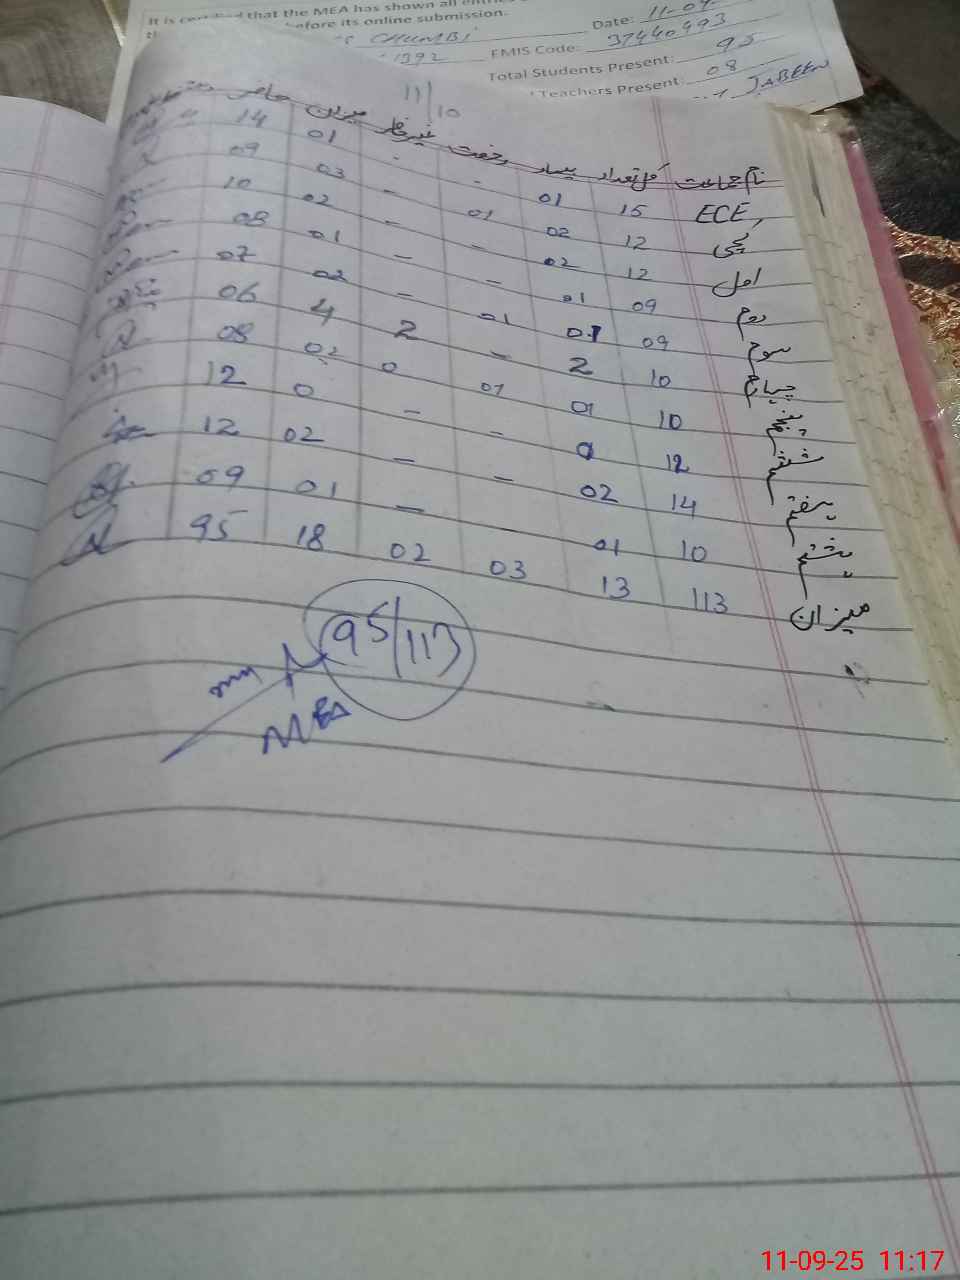 It is certified that the MEA has shown all entries
before its online submission.
Date: 11-09-
CHUMBI
1392
EMIS Code: 37440493
Total Students Present: 95
Teachers Present: 08
JABEEN
11/10
نام جماعت کل تعداد بیمار رخصت غیر حاضر میزان حاضر
ECE, 15 01 - - 01 14
کچی 12 02 01 - 03 09
اول 12 02 - - 02 10
دوم 09 01 - - 01 08
سوم 09 01 01 - 02 07
چہارم 10 2 - 2 4 06
پنجم 10 01 01 0 02 08
ششم 12 0 - - 0 12
ہفتم 14 02 - - 02 12
ہشتم 10 01 - 01 09
میزان 113 13 03 02 18 95
95/113
MEA
11-09-25 11:17